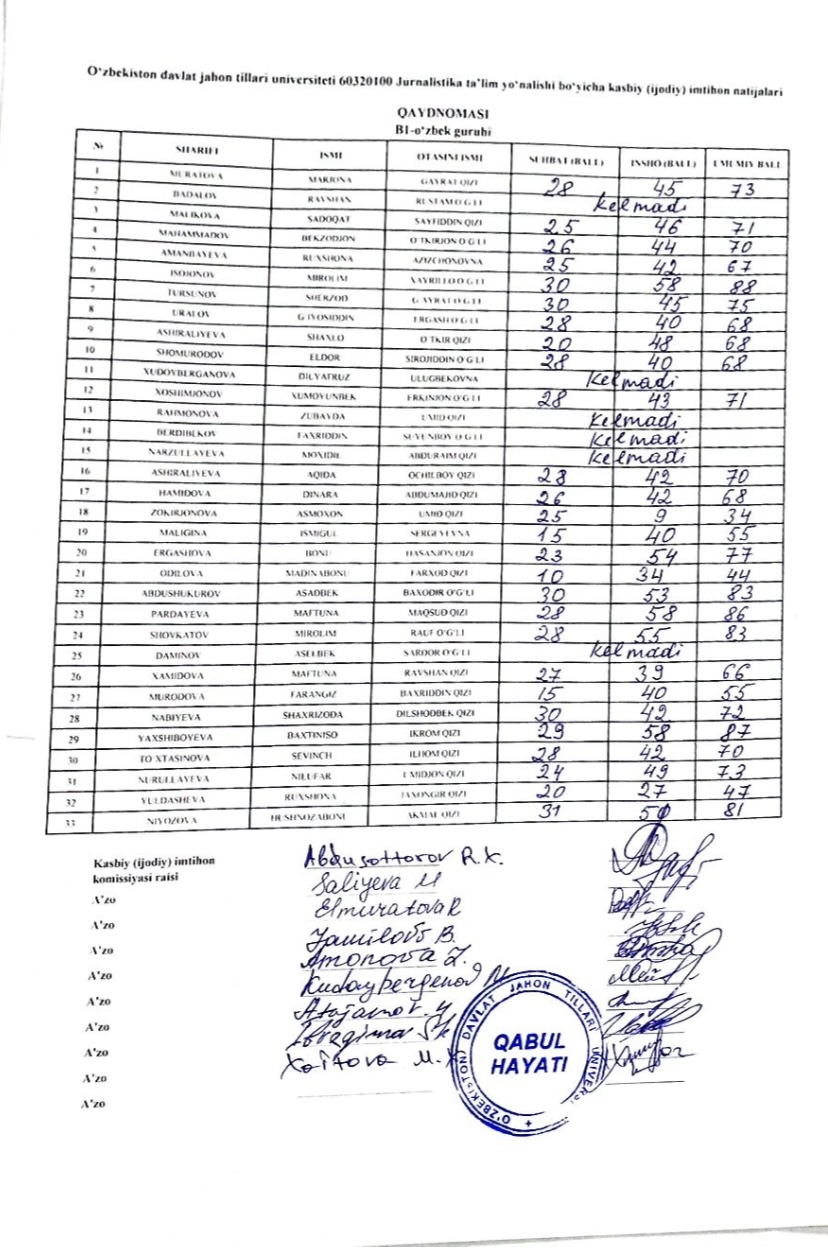 O‘zbekiston davlat jahon tillari universiteti 60320100 Jurnalistika ta’lim yo‘nalishi bo‘yicha kasbiy (ijodiy) imtihon natijalari
QAYDNOMASI
B1-o‘zbek guruhi
№ SHARIFI ISMI OTASINI ISMI SUHBAT (BALL) INSHO (BALL) UMUMIY BALL
1 MURATOVA MARJONA GAYRAT QIZI 28 45 73
2 BADALOV RAVSHAN RUSTAM O G LI kelmadi
3 MALIKOVA SADOQAT SAYFIDDIN QIZI 25 46 71
4 MAHAMMADOV BEKZODJON O TKIRJON O G LI 26 44 70
5 AMANBAYEVA RUXSHONA AZIZCHONOVNA 25 42 67
6 ISOJONOV MIROLIM NAVRILLO O G LI 30 58 88
7 TURSUNOV SHERZOD G AYRAT O G LI 30 45 75
8 URALOV G IYOSIDDIN ERGASH O G LI 28 40 68
9 ASHIRALIYEVA SHAXLO O TKIR QIZI 20 48 68
10 SHOMURODOV ELDOR SIROJIDDIN O G LI 28 40 68
11 XUDOYBERGANOVA DILYAFRUZ ULUGBEKOVNA kelmadi
12 XOSHIMJONOV XUMOYUNBEK ERKINJON O'G LI 28 43 71
13 RAHMONOVA ZUBAYDA UMID QIZI kelmadi
14 BERDIBEKOV FAXRIDDIN SUYUNBOY O G LI kelmadi
15 NARZULLAYEVA MOXIDIL ABDURAIM QIZI kelmadi
16 ASHIRALIYEVA AQIDA OCHILBOY QIZI 28 42 70
17 HAMIDOVA DINARA ABDUMAJID QIZI 26 42 68
18 ZOKIRJONOVA ASMOXON UMID QIZI 25 9 34
19 MALIGINA ISMIGUL SERGEYEVNA 15 40 55
20 ERGASHOVA BONU HASANJON QIZI 23 54 77
21 ODILOVA MADINABONU FARXOD QIZI 10 34 44
22 ABDUSHUKUROV ASADBEK BAXODIR O'G'LI 30 53 83
23 PARDAYEVA MAFTUNA MAQSUD QIZI 28 58 86
24 SHOVKATOV MIROLIM RAUF O'G'LI 28 55 83
25 DAMINOV ASELBEK SARDOR O G LI kelmadi
26 XAMIDOVA MAFTUNA RAVSHAN QIZI 27 39 66
27 MURODOVA FARANGIZ BAXRIDDIN QIZI 15 40 55
28 NABIYEVA SHAXRIZODA DILSHODBEK QIZI 30 42 72
29 YAXSHIBOYEVA BAXTINISO IKROM QIZI 29 58 87
30 TO XTASINOVA SEVINCH ILHOM QIZI 28 42 70
31 NURULLAYEVA NILUFAR UMIDJON QIZI 24 49 73
32 YULDASHEVA RUXSHONA JAXONGIR QIZI 20 27 47
33 NIYOZOVA HUSHNOZABONU AKMAL QIZI 31 50 81
Kasbiy (ijodiy) imtihon Abdusattorov R.X.
komissiyasi raisi Saliyeva M
A’zo Elmuratova R
A’zo Jamilova B.
A’zo Amonova Z.
A’zo Kudaybergenov
A’zo Atajanov. Y
A’zo Ibragimov Sh
A’zo Xaitova M.X
A’zo
A’zo
O'ZBEKISTON DAVLAT JAHON TILLARI UNIVERSI
QABUL
HAYATI